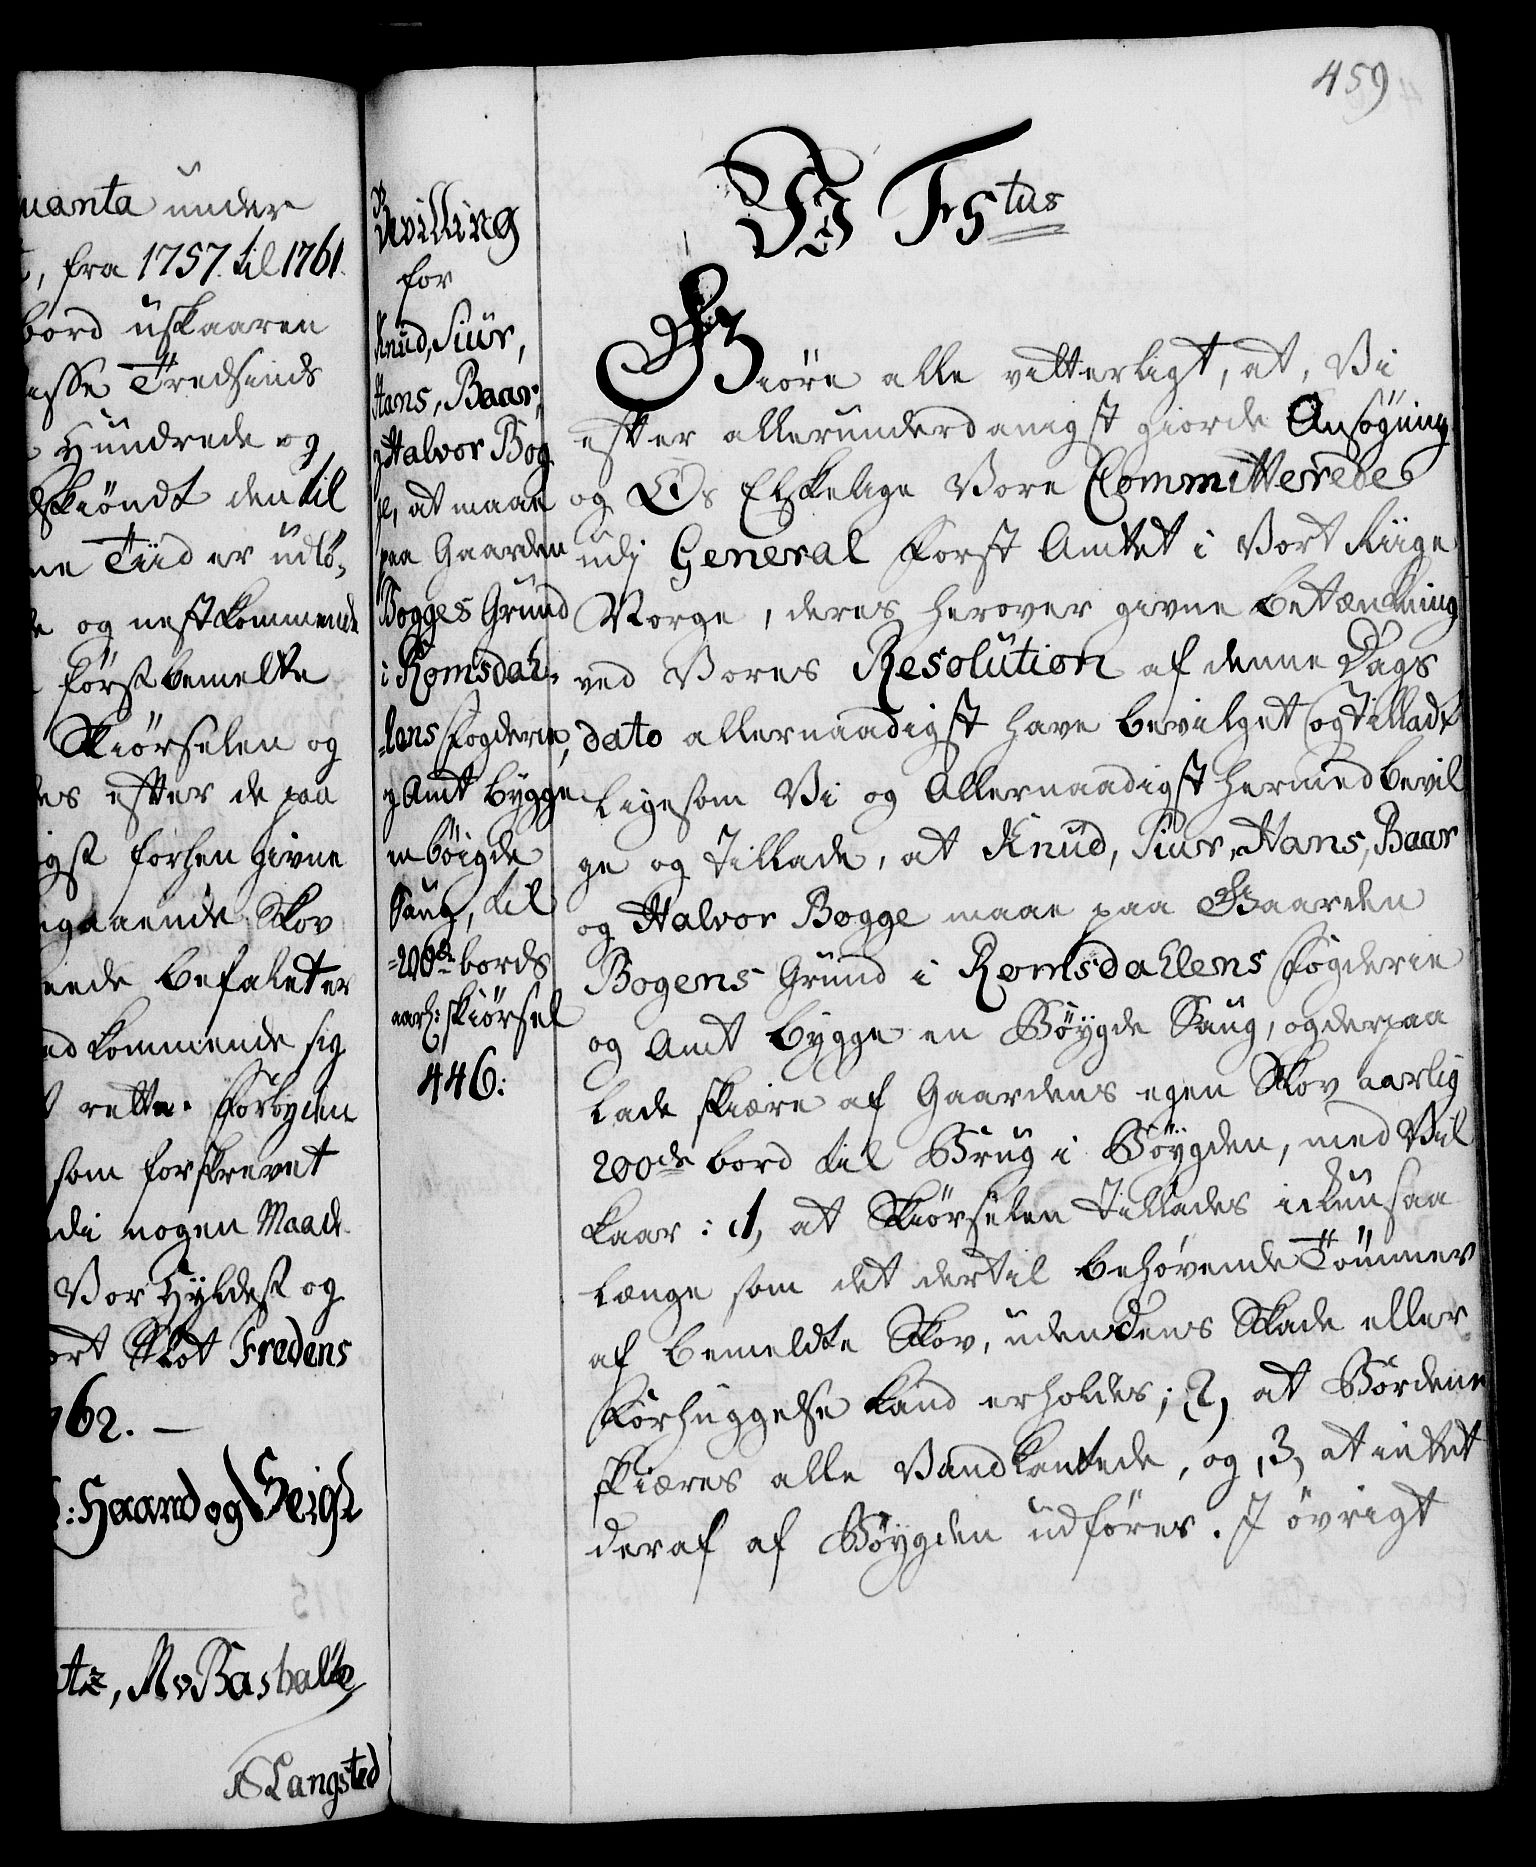 uanta under
, fra 1757. til 1761.
bord uskaaren
isse Tredsinds
Hundrede og
skiöndt den til
ne Tiid er udlö-
og nestkommende
förstbemelte
Skiörselen og
es efter de paa
igst forhen givne
gaaende Skov
ende befaleter
ed kommende sig
rette. Forbyden
som forskrevet
di nogen Maade
Vor Hyldest og
ort Slot Fredens
762. —
: Haand og Seigl
tz, M v Bashalle
Langsted
Bevilling
for
Knud, Siur,
Hans, Baar,
og Halvor Bog
ge, at maae
paa Gaarden
Bogges Grund
i Romsdah-
lens Fogderie,
og Amt bygge
en böigde
Saug, til
200de bords
aarl: skiörsel
446:
459
Vi Fr 5tus
Giöre alle vitterligt, at, Vi
efter allerunderdanigst giorde Ansögning
og Os Elskelige Vore Committerede
udj General Forst Amtet i Vort Riige
Norge, deres herover givne betænkning
ved Vores Resolution af denne Dags
dato allernaadigst have bevilget og tilladt
ligesom Vi og Allernaadigst hermed bevil
ge og tillade, at Knud, Siur, Hans, Baar
og Halvor Bogge maae paa Gaarden
Bogens Grund i Romsdahlens Fogderie
og Amt bygge en Böygde Saug, og derpaa
lade skiære af Gaardens egen Skov aarlig
200de bord til Brug i Böygden, med Vil
kaar: 1, at Skiörselen tillades ickun saa
længe som det dertil behövende Tömmer
af bemeldte Skov, uden dens Skade eller
Forhuggelse kand erholdes; 2, at Bordene
skiæres alle Vandkantede, og, 3, at intet
deraf af Böygden udföres. I övrigt